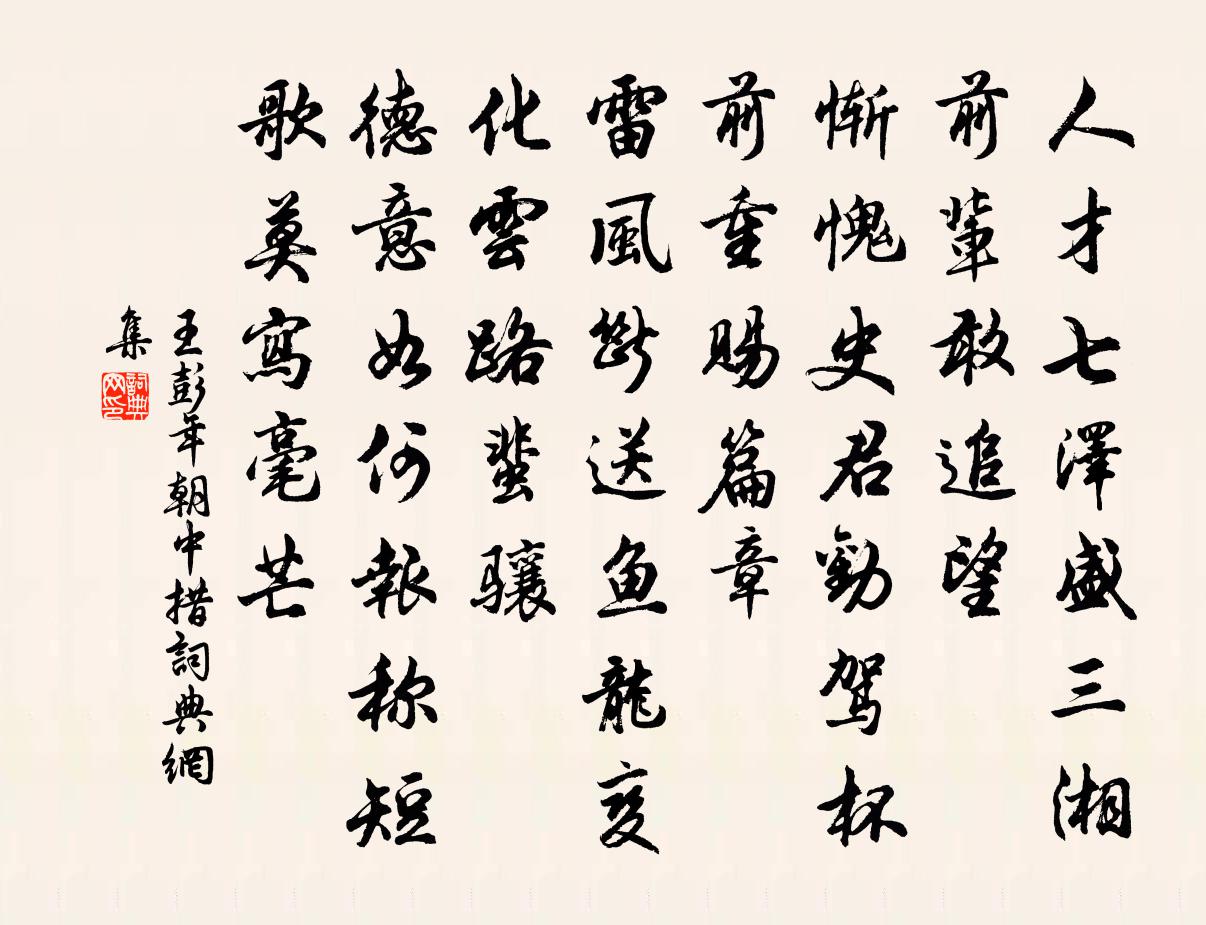 人才七澤盛三湘
前輩敢追望
慚愧史君勸駕杯
前重賜篇章
雷風斷送魚龍变
化雲路蜚驤
德意如何報称短
歌莫寫毫芒
王彭年朝中措詞典網
集
詞典網印